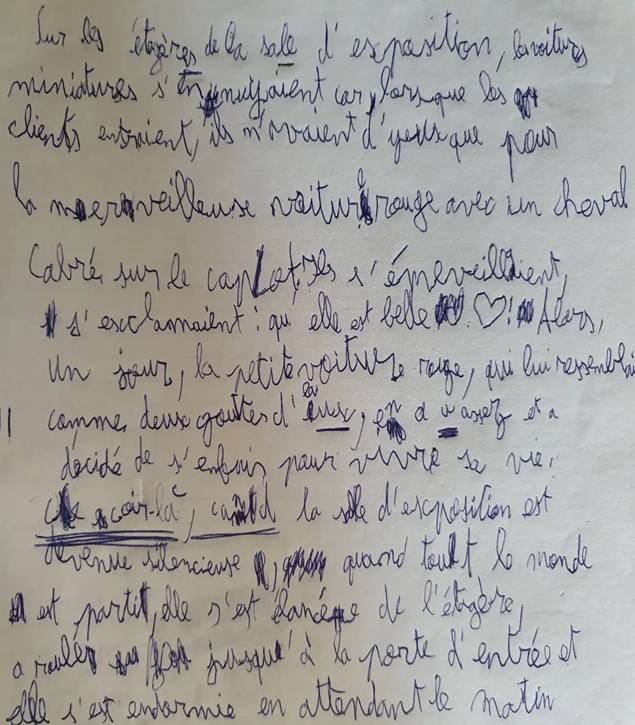 Sur les étagères de la sale d'exposition, la voitures
miniatures s'ennuyaient car, lorsque les
clients entraient, ils n'avaient d'yeux que pour
la merveilleuse voiture rouge avec un cheval
Cabré sur le capot. Ils s'émerveillaient,
s'exclamaient : qu'elle est belle ♡! Alors,
un jour, la petite voiture rouge, qui lui ressemblai
comme deux gouttes d'eau, en a u assez et a
décidé de s'enfouir pour vivre sa vie.
Ce soir-là, cand la salle d'exposition est
devenue silencieuse, quand tout le monde
et partit, elle s'est élancée de l'étagère,
a rouler jusqu'à la porte d'entrée et
elle s'est endormie en attendant le matin